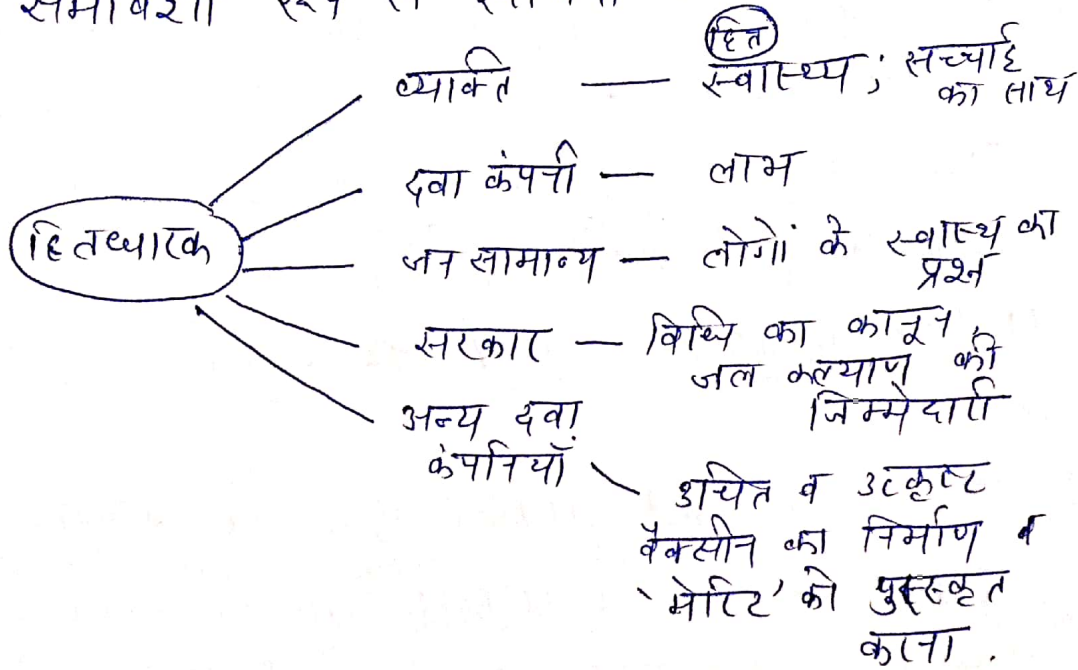 समावेशी रूप से
हित
व्यक्ति — स्वास्थ्य ; सच्चाई
का साथ
दवा कंपनी — लाभ
हितधारक
जन सामान्य — लोगों के स्वास्थ्य का
प्रश्न
सरकार — विधि का कानून,
जल कल्याण की
जिम्मेदारी
अन्य दवा
कंपनियाँ
उचित व उत्कृष्ट
वैक्सीन का निर्माण व
'मेरिट' को पुरस्कृत
करना .